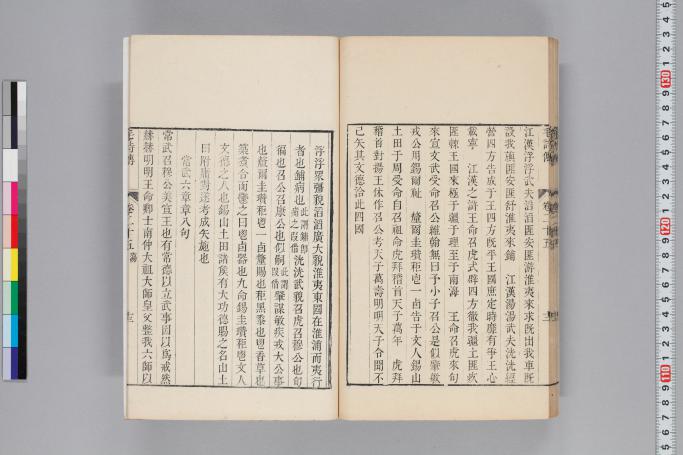 江漢浮浮武夫滔滔匪安匪游淮夷來求既出我車既
設我旟匪安匪舒淮夷來鋪　江漢湯湯武夫洸洸經
營四方告成于王四方既平王國庶定時靡有爭王心
載寧　江漢之滸王命召虎式辟四方徹我疆土匪疚
匪棘王國來極于疆于理至于南海　王命召虎來旬
來宣文武受命召公維翰無曰予小子召公是似肇敏
戎公用錫爾祉　釐爾圭瓚秬鬯一卣告于文人錫山
土田于周受命自召祖命虎拜稽首天子萬年　虎拜
稽首對揚王休作召公考天子萬壽明明天子令聞不
已矢其文德洽此四國
浮浮眾彊貌滔滔廣大貌淮夷東國在淮浦而夷行
者也鋪病也洸洸武貌召虎召穆公也旬
徧也召公召康公也似嗣肇謀敏疾戎大公事
也釐爾圭瓚秬鬯一卣釐賜也秬黑黍也鬯香草也
築煑合而鬱之曰鬯卣器也九命錫圭瓚秬鬯文人
文德之人也錫山土田諸侯有大功德賜之名山土
田附庸對遂考成矢施也
常武六章章八句
常武召穆公美宣王也有常德以立武事因以為戒然
赫赫明明王命卿士南仲大祖大師皇父整我六師以
毛詩傳　卷二十五　蕩　十三